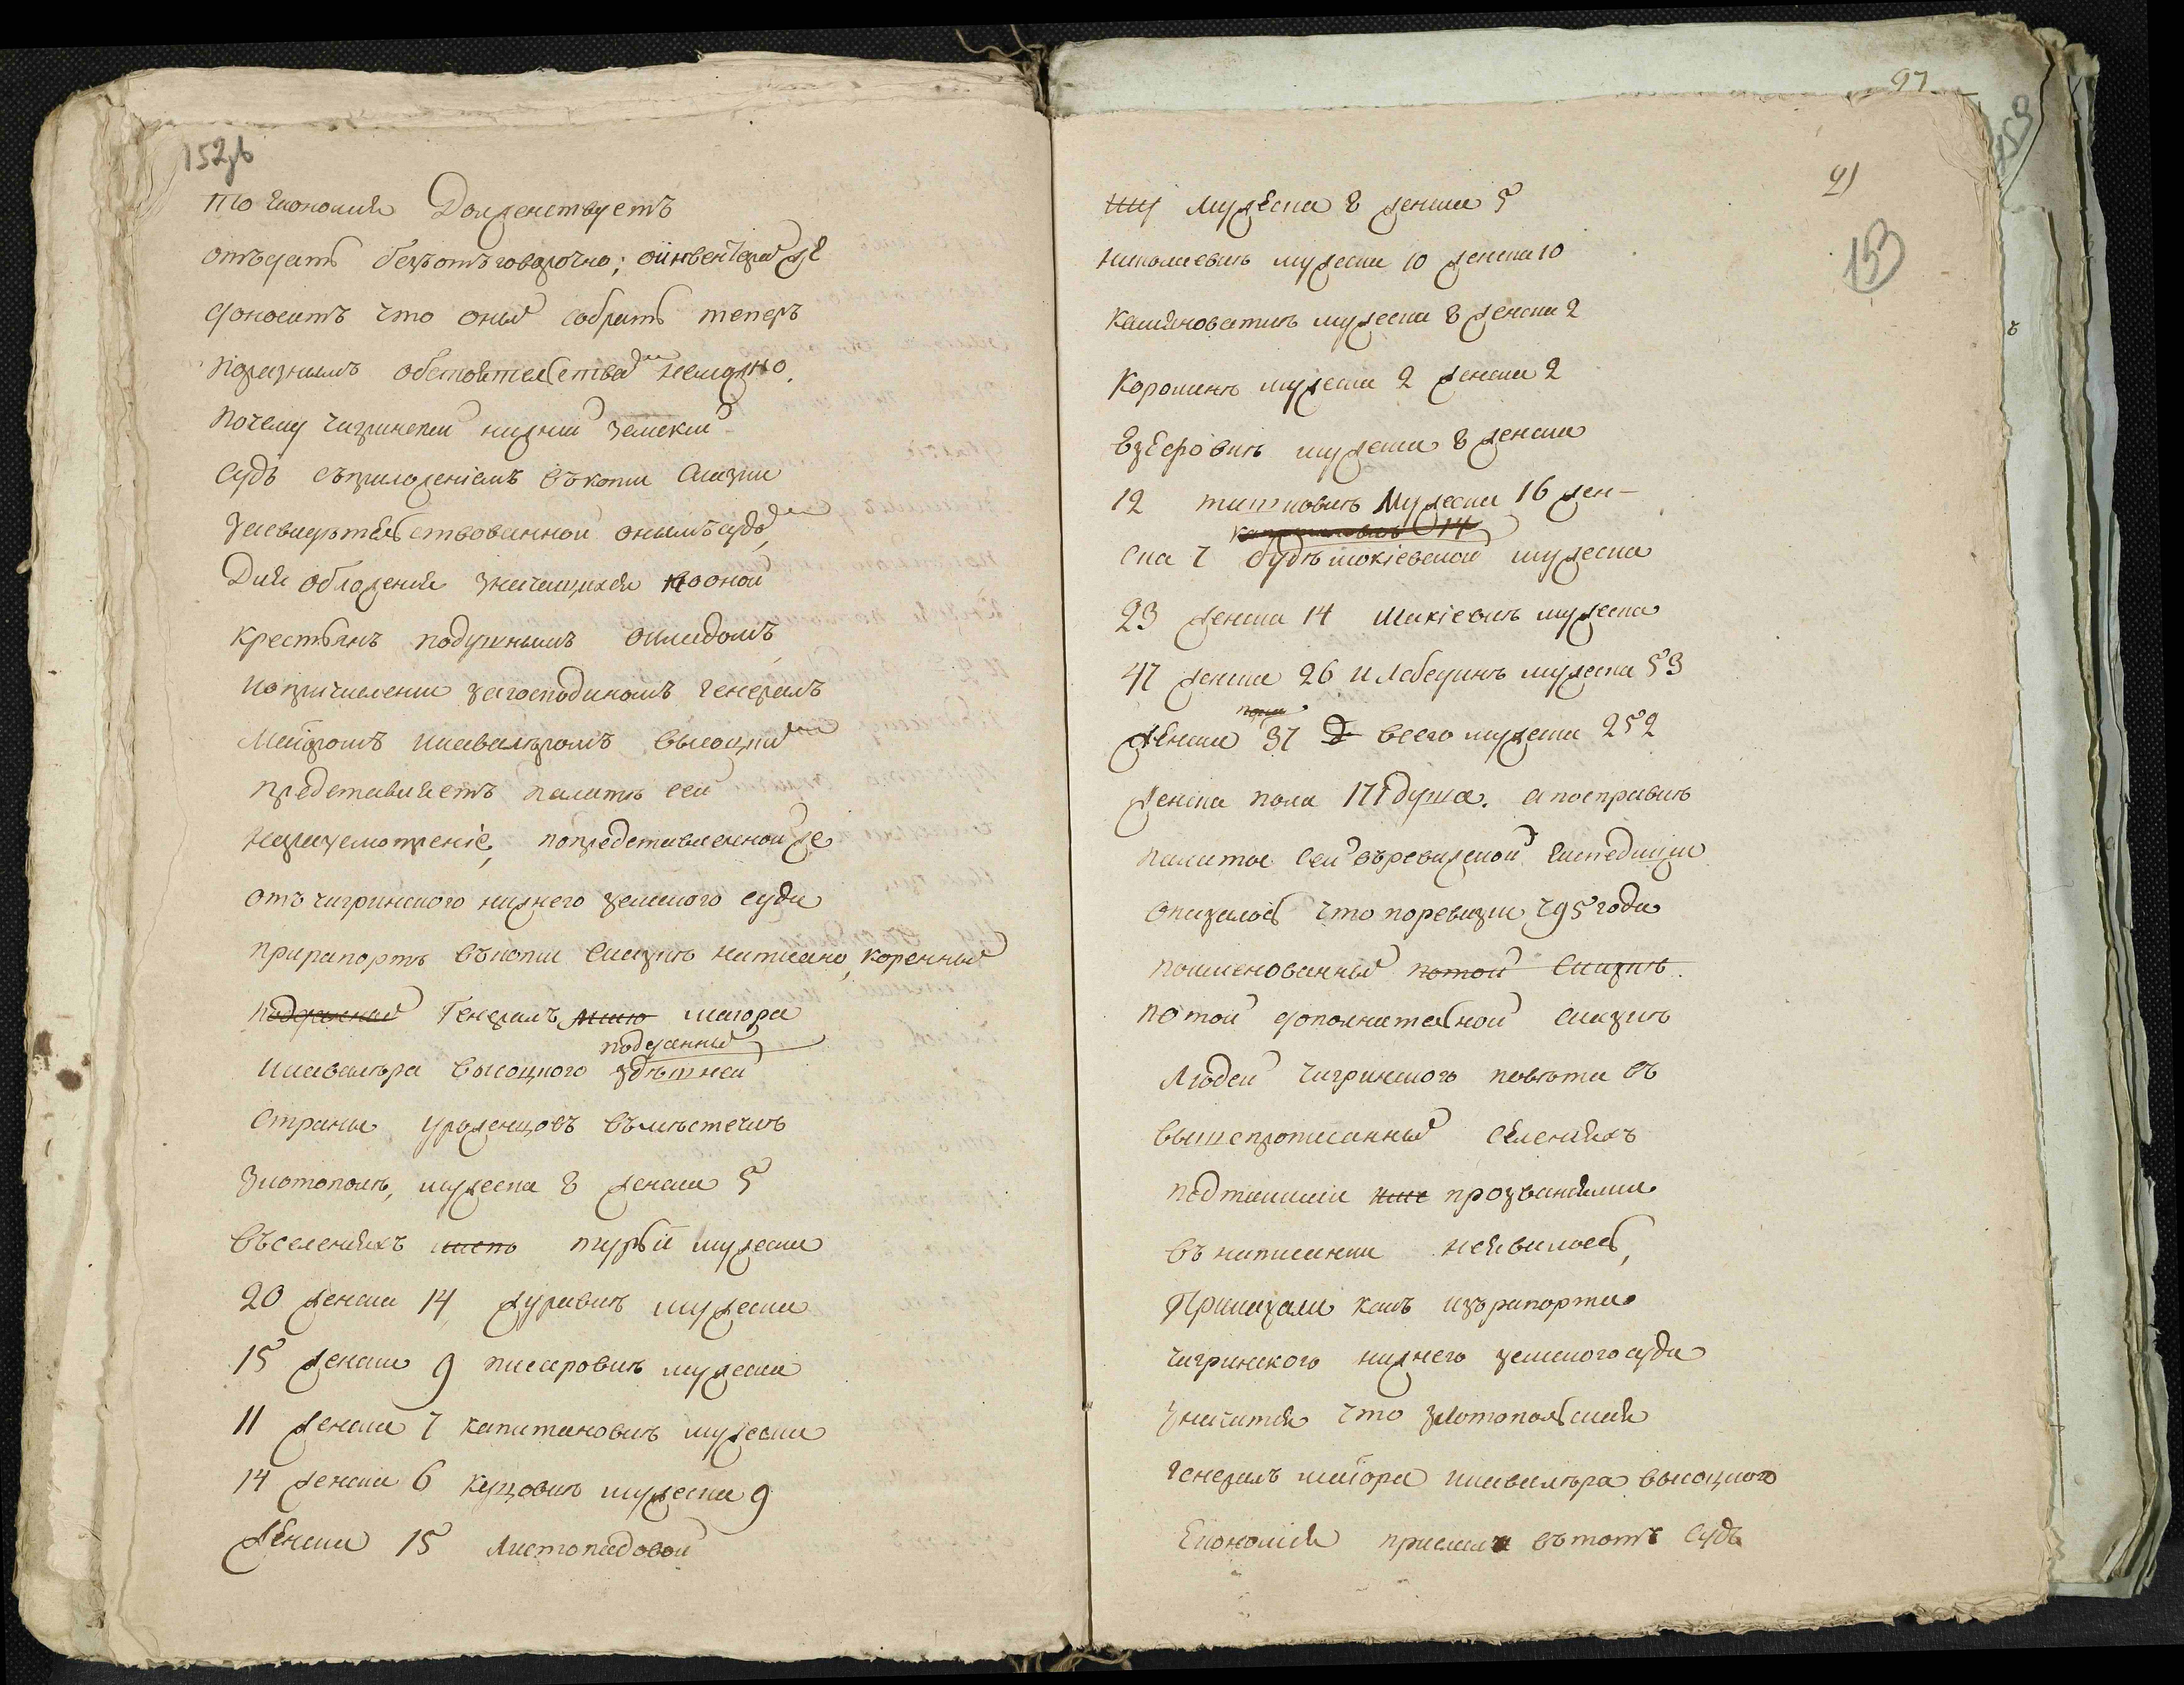 152 об
то економия Долженствуетъ
отъдать безъотъговорочно; оинвентаре же
доноситъ что оных собрать теперъ
поразнымъ обстоятельствам неможно,
Почему чигринский нижний земский
Судъ съприложениемъ въкопии Сказки
засвидетельствованной онымъ судом
Для обложения значащихся во оной
крестьянъ подушнымъ окладомъ
попричислении загосподиномъ генералъ
Маиоромъ икавалеромъ высоцким
представляетъ палате сей
наразсмотрение, попредставленной же
отъ чигринского нижнего земского суда
прирапорте въкопии сказке написано, коренных
подданных Генералъ маиора
подданных
икавалера высоцкого здешней
Страны уроженцовъ въместечке
Златополе, мужеска 8 женска 5
въселенияхъ турьи мужеска
20 женска 14 журавке мужеска
15 женска 9 писаровке мужеска
11 женска 7 капитановке мужеска
14 женска 6 купцовке мужеска 9
женска 15 Листопадовой
97
91
153
159
мужеска 8 женска 5
николаевке мужеска 10 женска 10
камяноватке мужеска 8 женска 2
Коромине мужеска 2 женска 2
мужеска 8 женска
12 титковке мужеска 16 жен-
ска 7 мужеска
23 женска 14 Макиевке мужеска
47 женска 26 и Лебедине мужеска 53
женска 37 всего мужеска 252
женска пола 171 душа. а посправке
палаты сей въревизской експедиции
оказалось что поревизии 795 года
поименованных потой Сказке
по той дополнительной сказке
Людей чигринского повета въ
вышепрописанных селенияхъ
подтакими прозваниями
въ написании неявилось,
Приказали какъ изърапорта
чигринского нижнего земского суда
значится что златопольская
генералъ маиора икавалера высоцкого
Економия прислала въ тотъ судъ